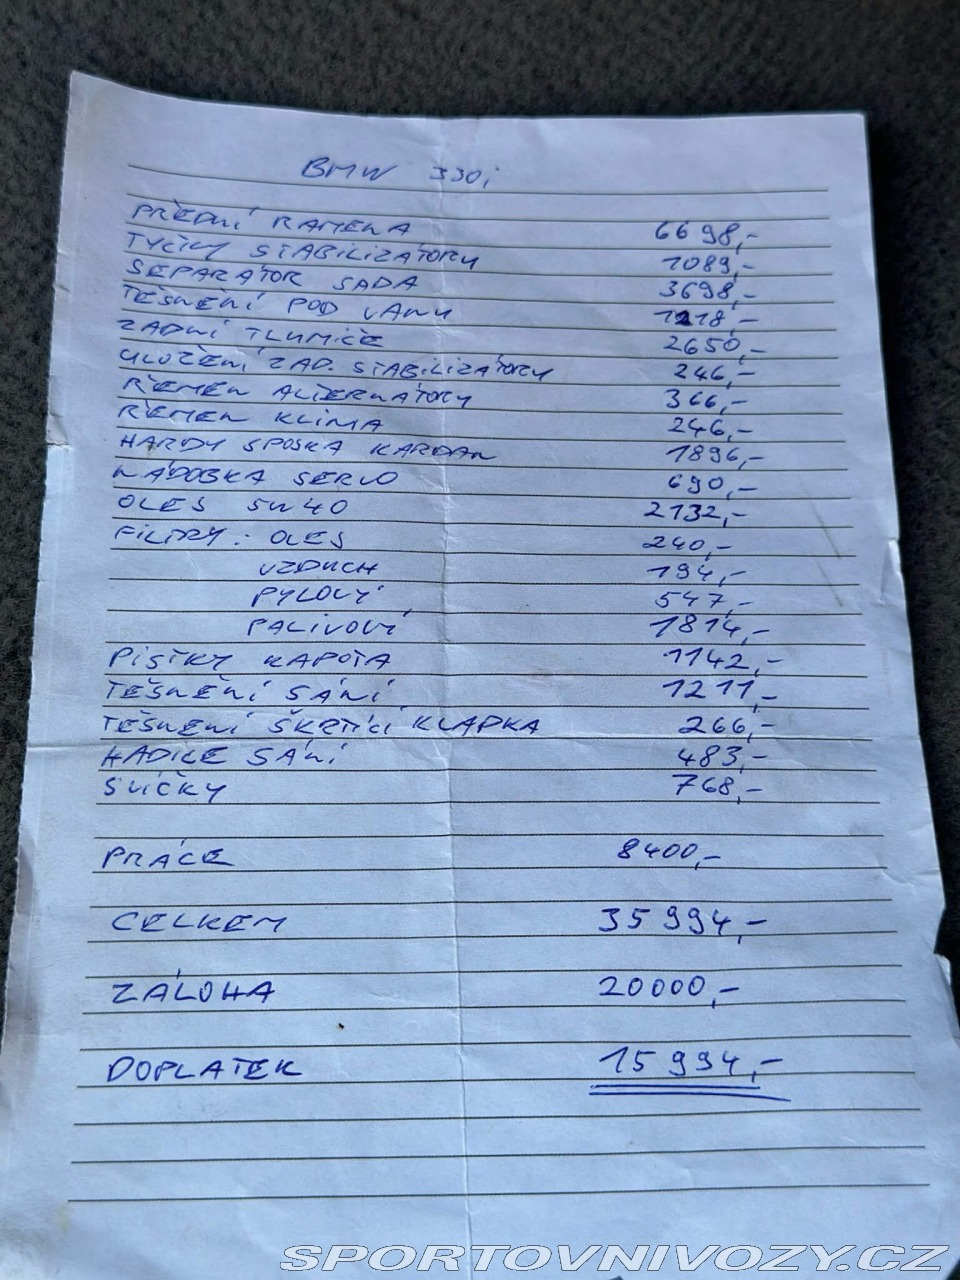 BMW 330i
PŘEDNÍ RAMENA 6698,-
TYČKY STABILIZÁTORU 1089,-
SEPARÁTOR SADA 3698,-
TĚSNĚNÍ POD VANU 1218,-
ZADNÍ TLUMIČE 2650,-
ULOŽENÍ ZAD. STABILIZÁTORU 246,-
ŘEMEN ALTERNÁTORU 366,-
ŘEMEN KLIMA 246,-
HARDY SPOJKA KARDAN 1896,-
NÁDOBKA SERVO 690,-
OLEJ 5W40 2132,-
FILTRY: OLEJ 240,-
VZDUCH 194,-
PYLOVÝ 547,-
PALIVOVÝ 1814,-
PÍSTKY KAPOTA 1142,-
TĚSNĚNÍ SÁNÍ 1211,-
TĚSNĚNÍ ŠKRTÍCÍ KLAPKA 266,-
HADICE SÁNÍ 483,-
SVÍČKY 768,-
PRÁCE 8400,-
CELKEM 35 994,-
ZÁLOHA 20000,-
DOPLATEK 15 994,-
SPORTOVNIVOZY.CZ